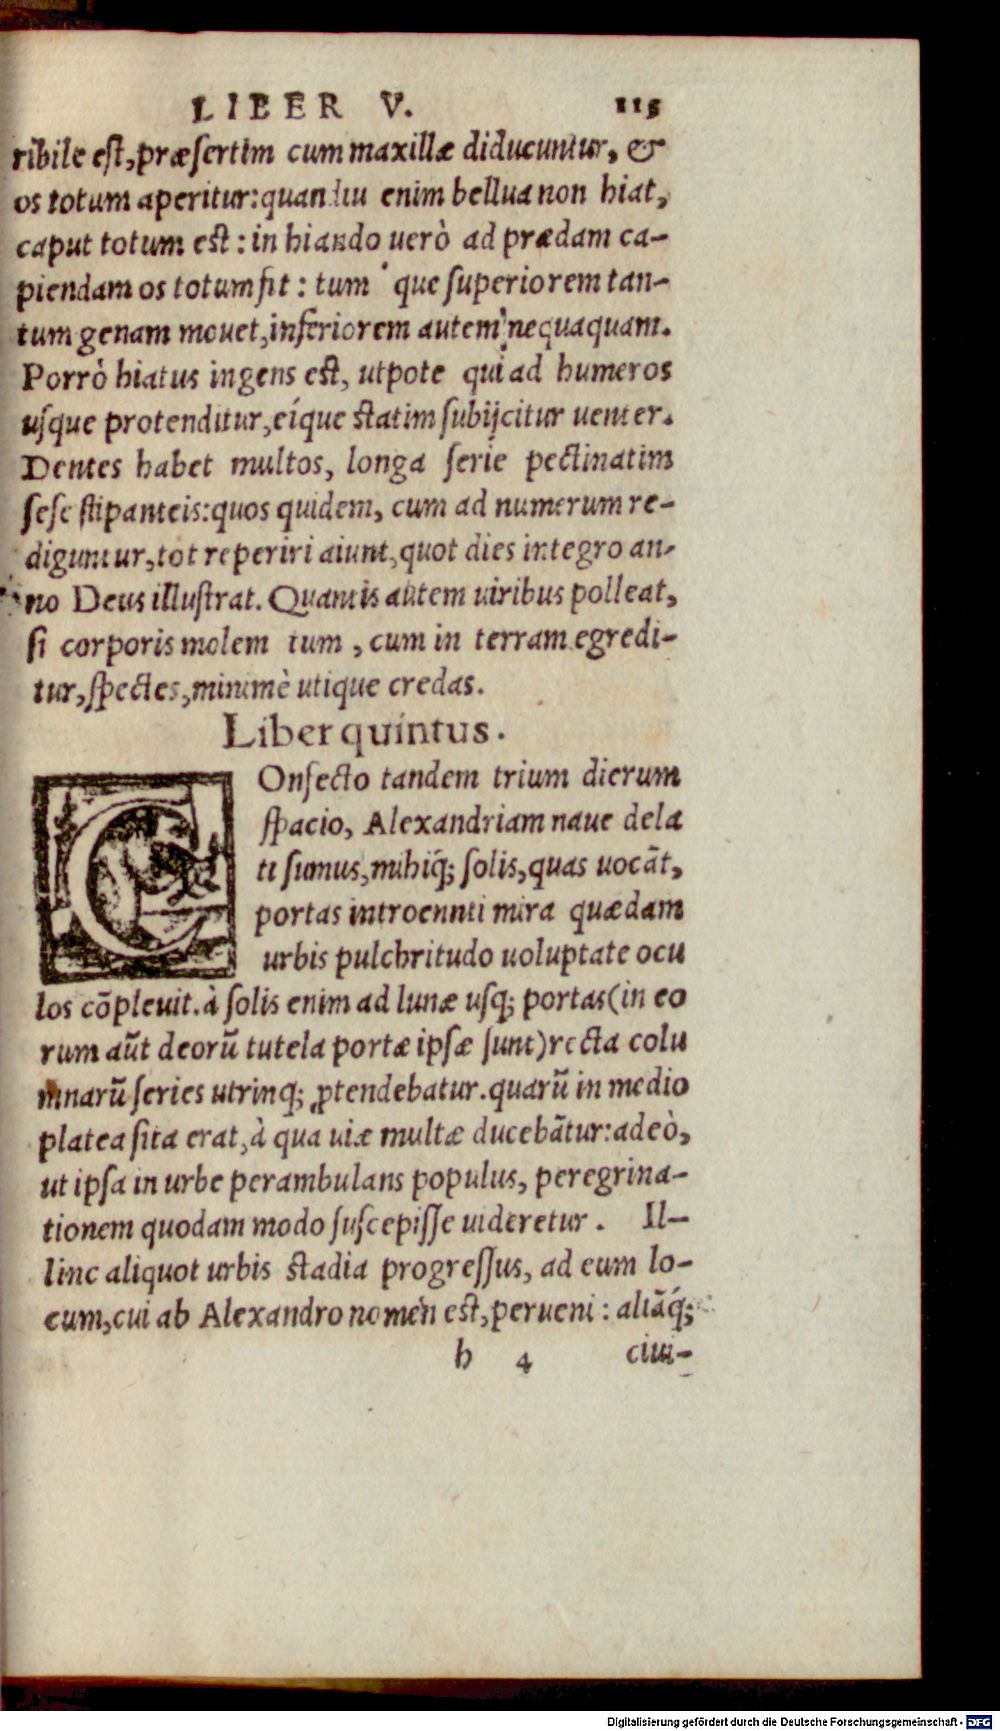 LIBER V. 115
ribile est, præsertim cum maxillæ diducuntur, &
os totum aperitur: quandiu enim bellua non hiat,
caput totum est: in hiando uerò ad prædam ca-
piendam os totum fit: tum que superiorem tan-
tum genam mouet, inferiorem autem nequaquam.
Porrò hiatus ingens est, utpote qui ad humeros
usque protenditur, eíque statim subijcitur uenter.
Dentes habet multos, longa serie pectinatim
sese stipanteis: quos quidem, cum ad numerum re-
diguntur, tot reperiri aiunt, quot dies integro an-
no Deus illustrat. Quantis autem uiribus polleat,
si corporis molem tum, cum in terram egredi-
tur, spectes, minimè utique credas.
Liber quintus.
COnfecto tandem trium dierum
spacio, Alexandriam naue dela
ti sumus, mihiq́; solis, quas uocãt,
portas introeunti mira quædam
urbis pulchritudo uoluptate ocu
los cõpleuit. à solis enim ad lunæ usq; portas (in eo
rum aũt deorũ tutela portæ ipsæ sunt) recta colu
mnarũ series utrinq; ꝓtendebatur. quarũ in medio
platea sita erat, à qua uiæ multæ ducebãtur: adeò,
ut ipsa in urbe perambulans populus, peregrina-
tionem quodam modo suscepisse uideretur. Il-
linc aliquot urbis stadia progressus, ad eum lo-
cum, cui ab Alexandro nomen est, perueni: aliãq́;
h 4 ciui-
Digitalisierung gefördert durch die Deutsche Forschungsgemeinschaft - DFG